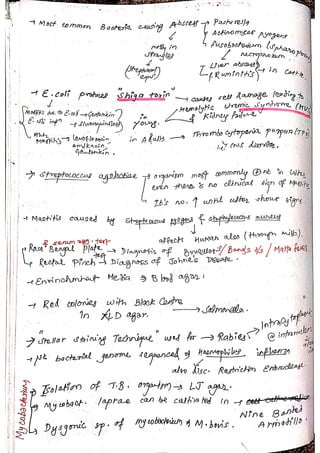 → Most common Bacteria causing Abscess → Pasturella
→ Actinomyces pyogens
→ Fusobacterium (Spharophorus) necrophorum
mostly in strangles
(Strepto equi)
↑ Liver abscess & Ruminitis in Cattle.
→ E.coli produces "Shiga toxin" → causes cell damage leading to
in young. → Hemolytic Uremic Syndrome (HUS)
Kidney failure
Mastitis due to E.coli → Gentamicin
E.coli
in Adults → Thrombocytopenia purpura (TTP)
CNS
Mastitis → 
amikacin,
Gentamicin.
→ Streptococcus agalactiae → organism most commonly in udder
even there is no clinical sign of Mastitis
It's no. ↑ until udder shows signs
→ Mastitis caused by Streptococcus pyogens & Staphylococcus aureus
affects Human also (through milk).
→ Rose Bengal Plate test → Diagnosis of Brucellosis / Bang's d/s / Malta fever
→ Rectal Pinch → Diagnosis of Johne's Disease.
→ Enrichment Media → Blood agar.
→ Red colonies with Black Centre
in XLD agar. → Salmonella.
→ "Seller staining Technique" used for → Rabies → Intracytoplasmic
→ 1st bacterial genome sequenced → Haemophilus influenza
also disc. Restriction Endonuclease
Mycobacterium
→ Isolation of T.B. organism → LJ agar.
→ Mycobact. laprae can be cultivated in →
Nine Banded
Armadillo.
→ Dysgonic sp. of mycobacterium → M. bovis.